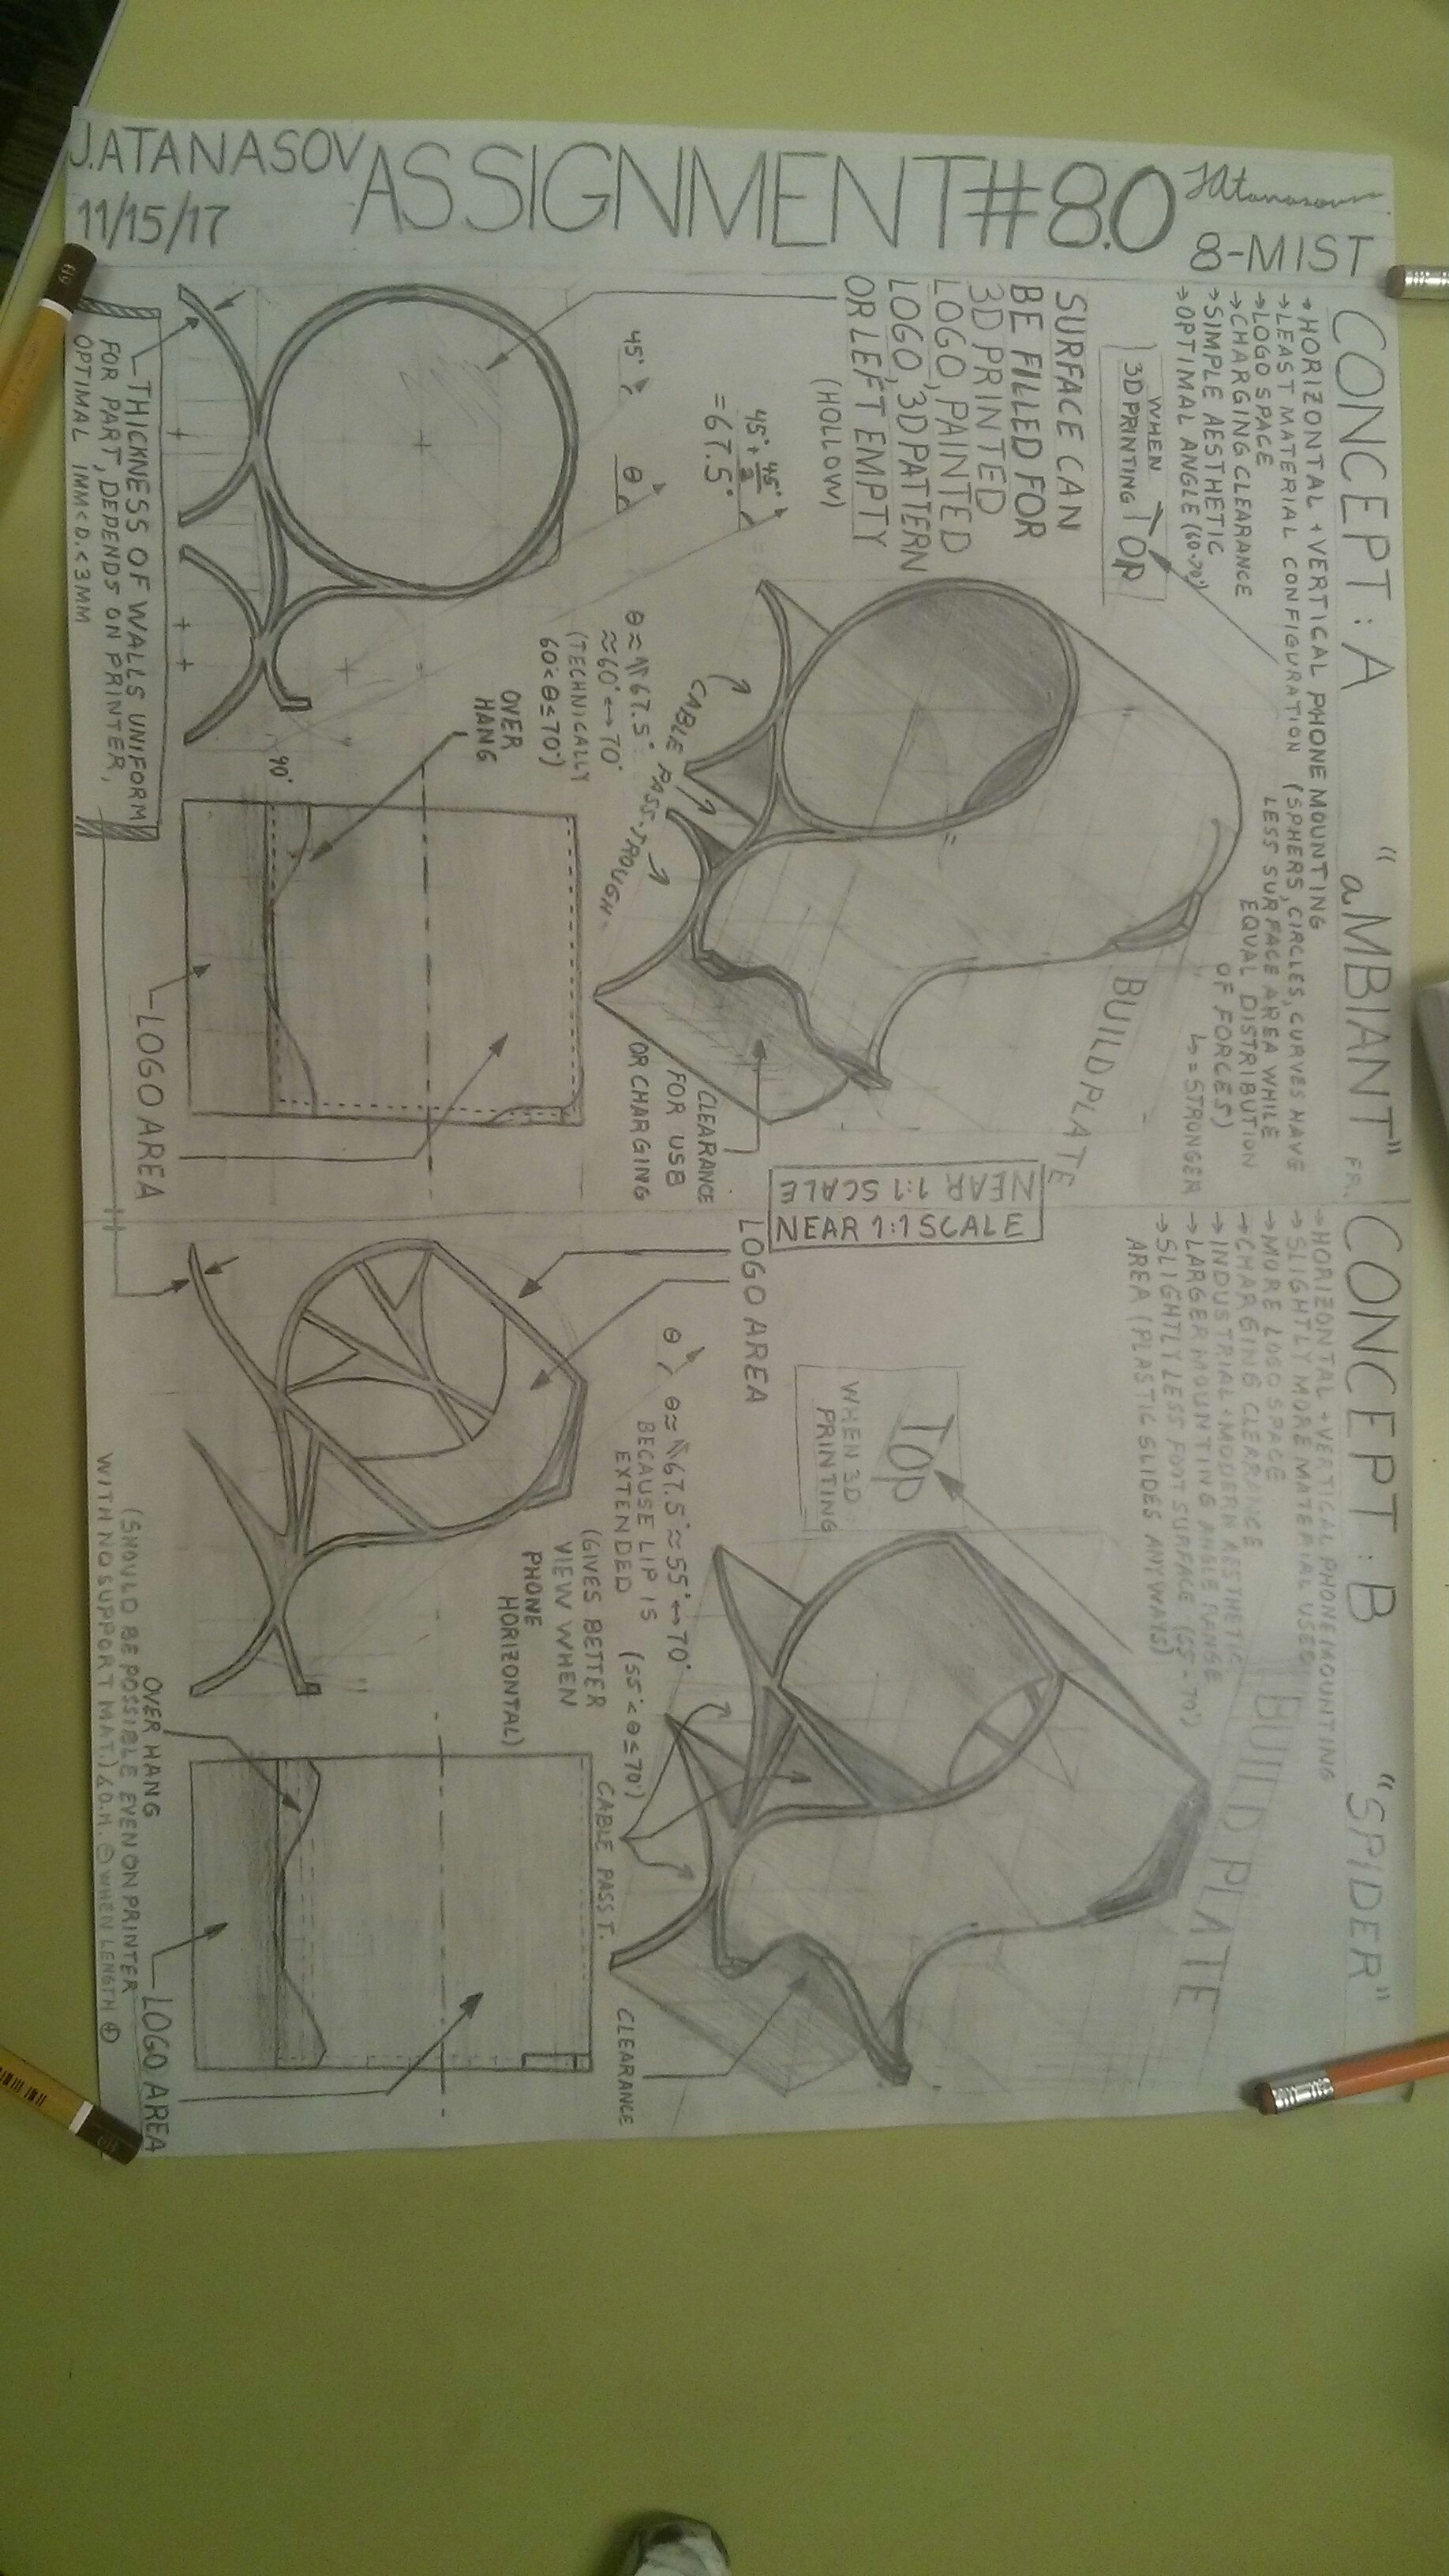 J.ATANASOV
11/15/17
ASSIGNMENT#8.0
JAtanasov
8-MIST
CONCEPT: A
"aMBIANT" FR.
→HORIZONTAL + VERTICAL PHONE MOUNTING
→LEAST MATERIAL CONFIGURATION (SPHERS, CIRCLES, CURVES HAVE
LESS SURFACE AREA WHILE
EQUAL DISTRIBUTION
OF FORCES)
↳=STRONGER
→LOGO SPACE
→CHARGING CLEARANCE
→SIMPLE AESTHETIC
→OPTIMAL ANGLE (60-70°)
WHEN
3D PRINTING
TOP
BUILD PLATE
SURFACE CAN
BE FILLED FOR
3D PRINTED
LOGO, PAINTED
LOGO, 3D PATTERN
OR LEFT EMPTY
(HOLLOW)
45°+45°/2
=67.5°
45°
θ
θ≈67.5°
≈60°↔70°
(TECHNICALLY
60°<θ≤70°)
CABLE PASS-TROUGH
CLEARANCE
FOR USB
OR CHARGING
OVER
HANG
90°
LOGO AREA
THICKNESS OF WALLS UNIFORM
FOR PART, DEPENDS ON PRINTER,
OPTIMAL 1MM<D.<3MM
NEAR 1:1 SCALE
NEAR 1:1 SCALE
CONCEPT: B
"SPIDER"
→HORIZONTAL + VERTICAL PHONE MOUNTING
→SLIGHTLY MORE MATERIAL USED
→MORE LOGO SPACE
→CHARGING CLEARANCE
→INDUSTRIAL+MODERN AESTHETIC
→LARGER MOUNTING ANGLE RANGE (55-70°)
→SLIGHTLY LESS FOOT SURFACE
AREA (PLASTIC SLIDES ANYWAYS)
BUILD PLATE
TOP
WHEN 3D
PRINTING
LOGO AREA
θ
θ≈67.5°≈55°↔70°
BECAUSE LIP IS
EXTENDED (55°<θ≤70°)
(GIVES BETTER
VIEW WHEN
PHONE
HORIZONTAL)
CABLE PASS T.
CLEARANCE
OVER HANG
(SHOULD BE POSSIBLE EVEN ON PRINTER
WITH NO SUPPORT MAT.) WHEN LENGTH
LOGO AREA